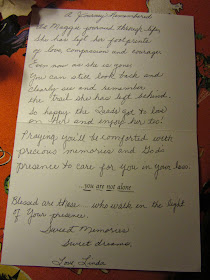 A Journey Remembered
As Maggie journied through life,
She has left her footprints
of love, compassion and courage.
Even now as she is gone
You can still look back and
Clearly see and remember
the trail she has left behind.
So happy the girls got to love
on her and enjoy her too!
Praying you'll be comforted with
precious memories and God's
presence to care for you in your loss.
...you are not alone
Blessed are those who walk in the light
of Your presence.
Sweet Memories
Sweet dreams,
Love Linda